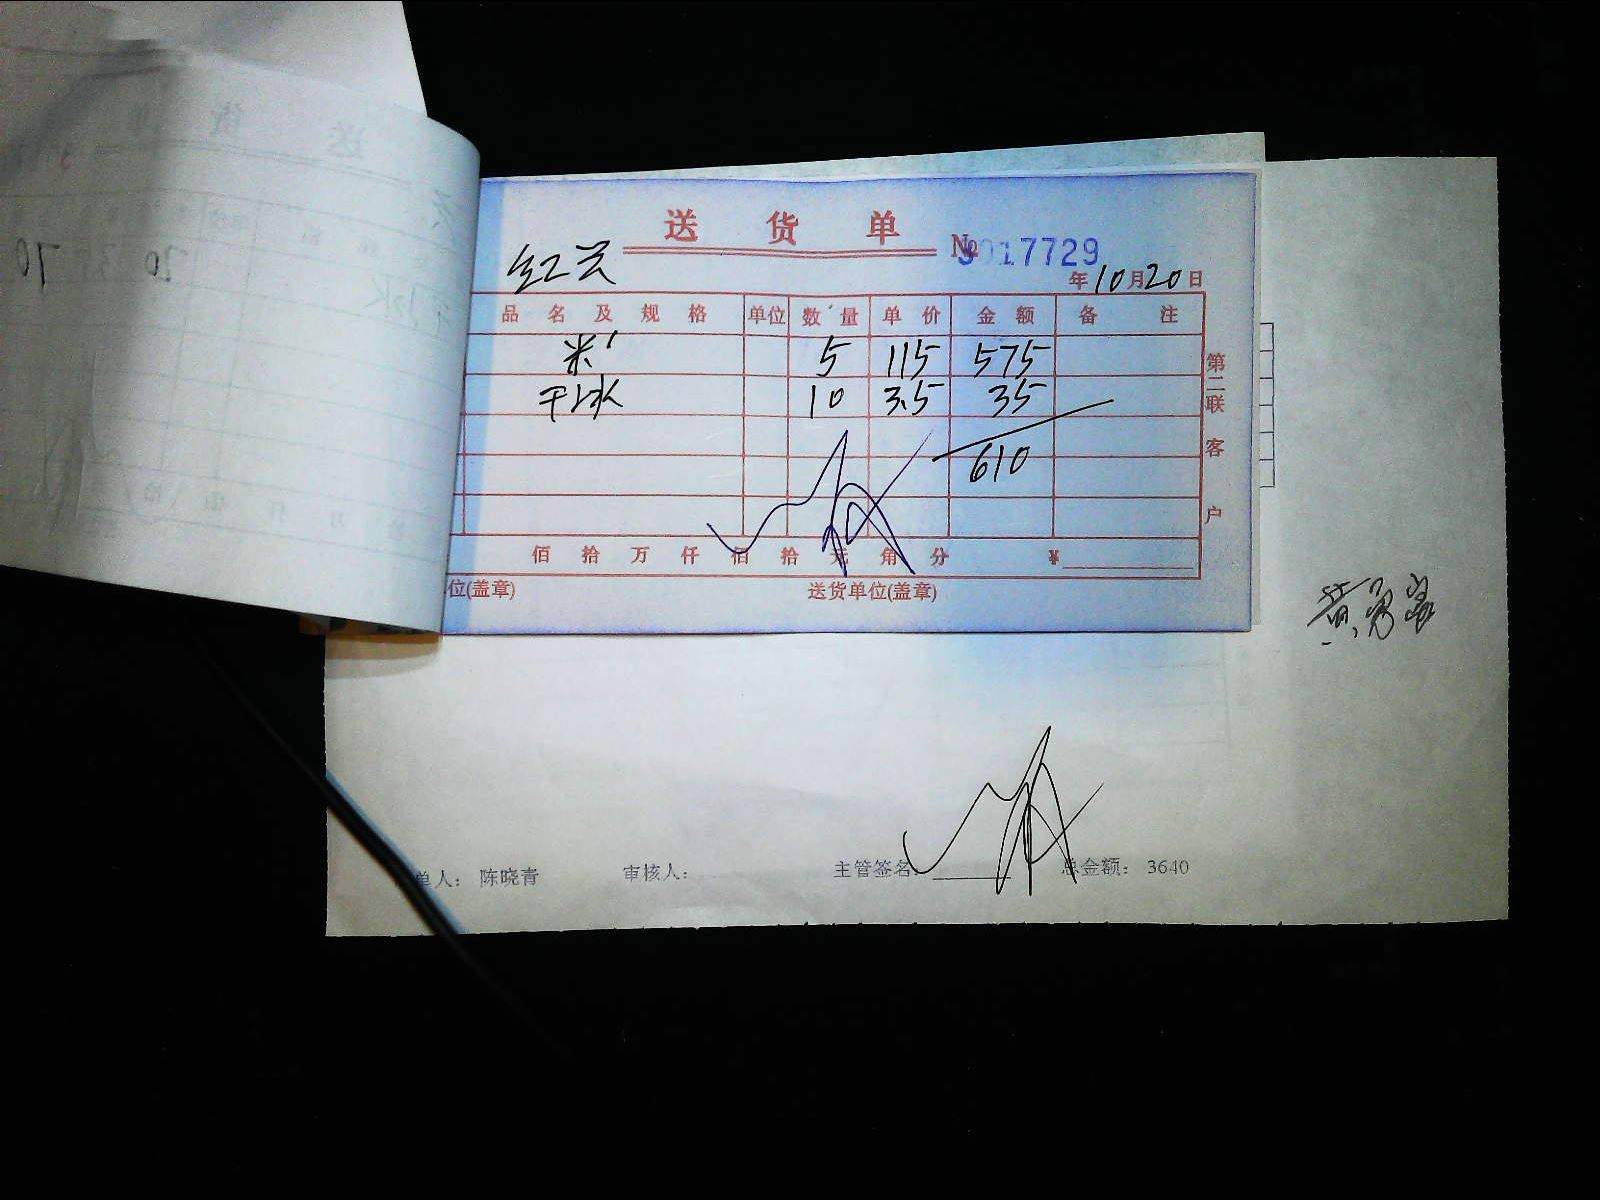 送货单
№ 3017729
红兴
年10月20日
品名及规格 单位 数量 单价 金额 备注
米 5 115 575
干冰 10 3.5 35
610
佰拾万仟佰拾元角分 ¥
位(盖章) 送货单位(盖章)
第二联 客户
单人: 陈晓青 审核人: 主管签名: 总金额: 3640